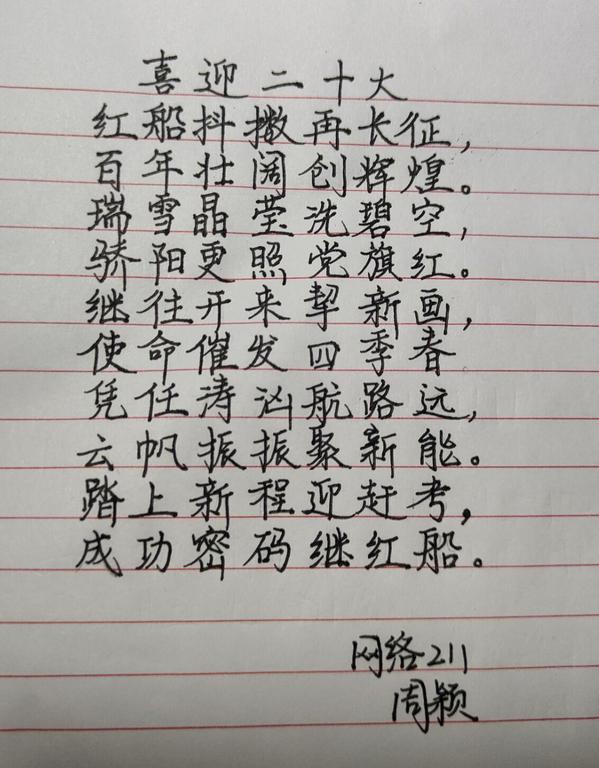 喜迎二十大
红船抖擞再长征，
百年壮阔创辉煌。
瑞雪晶莹洗碧空，
骄阳更照党旗红。
继往开来挈新画，
使命催发四季春
凭任涛汹航路远，
云帆振振聚新能。
踏上新程迎赶考，
成功密码继红船。
网络211
周颖